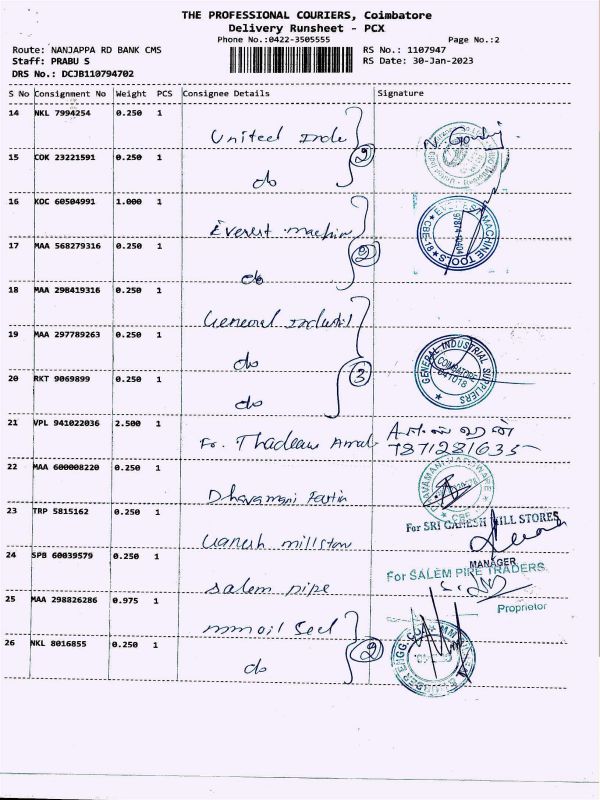 THE PROFESSIONAL COURIERS, Coimbatore
Delivery Runsheet - PCX
Phone No.:0422-3505555
Page No.:2
Route: NANJAPPA RD BANK CMS
RS No.: 1107947
Staff: PRABU S
RS Date: 30-Jan-2023
DRS No.: DCJB110794702
S No Consignment No Weight PCS Consignee Details Signature
14 NKL 7994254 0.250 1
United Inde
15 COK 23221591 0.250 1
do
2
16 KOC 60504991 1.000 1
Everest machin
EVEREST MACHINE TOOLS
CBE-18
17 MAA 568279316 0.250 1
do
2
18 MAA 298419316 0.250 1
General Industril
19 MAA 297789263 0.250 1
do
GENERAL INDUSTRIAL SUPPLIERS
COIMBATORE
641018
20 RKT 9069899 0.250 1
do
3
21 VPL 941022036 2.500 1
Fr.
7871281635
22 MAA 600008220 0.250 1
Dhavamani
23 TRP 5815162 0.250 1
Ganesh millstow
For SRI GANESH MILL STORES
MANAGER
24 SPB 60039579 0.250 1
Salem pipe
For SALEM PIPE TRADERS
Proprietor
25 MAA 298826286 0.975 1
mm oil seel
26 NKL 8016855 0.250 1
do
2